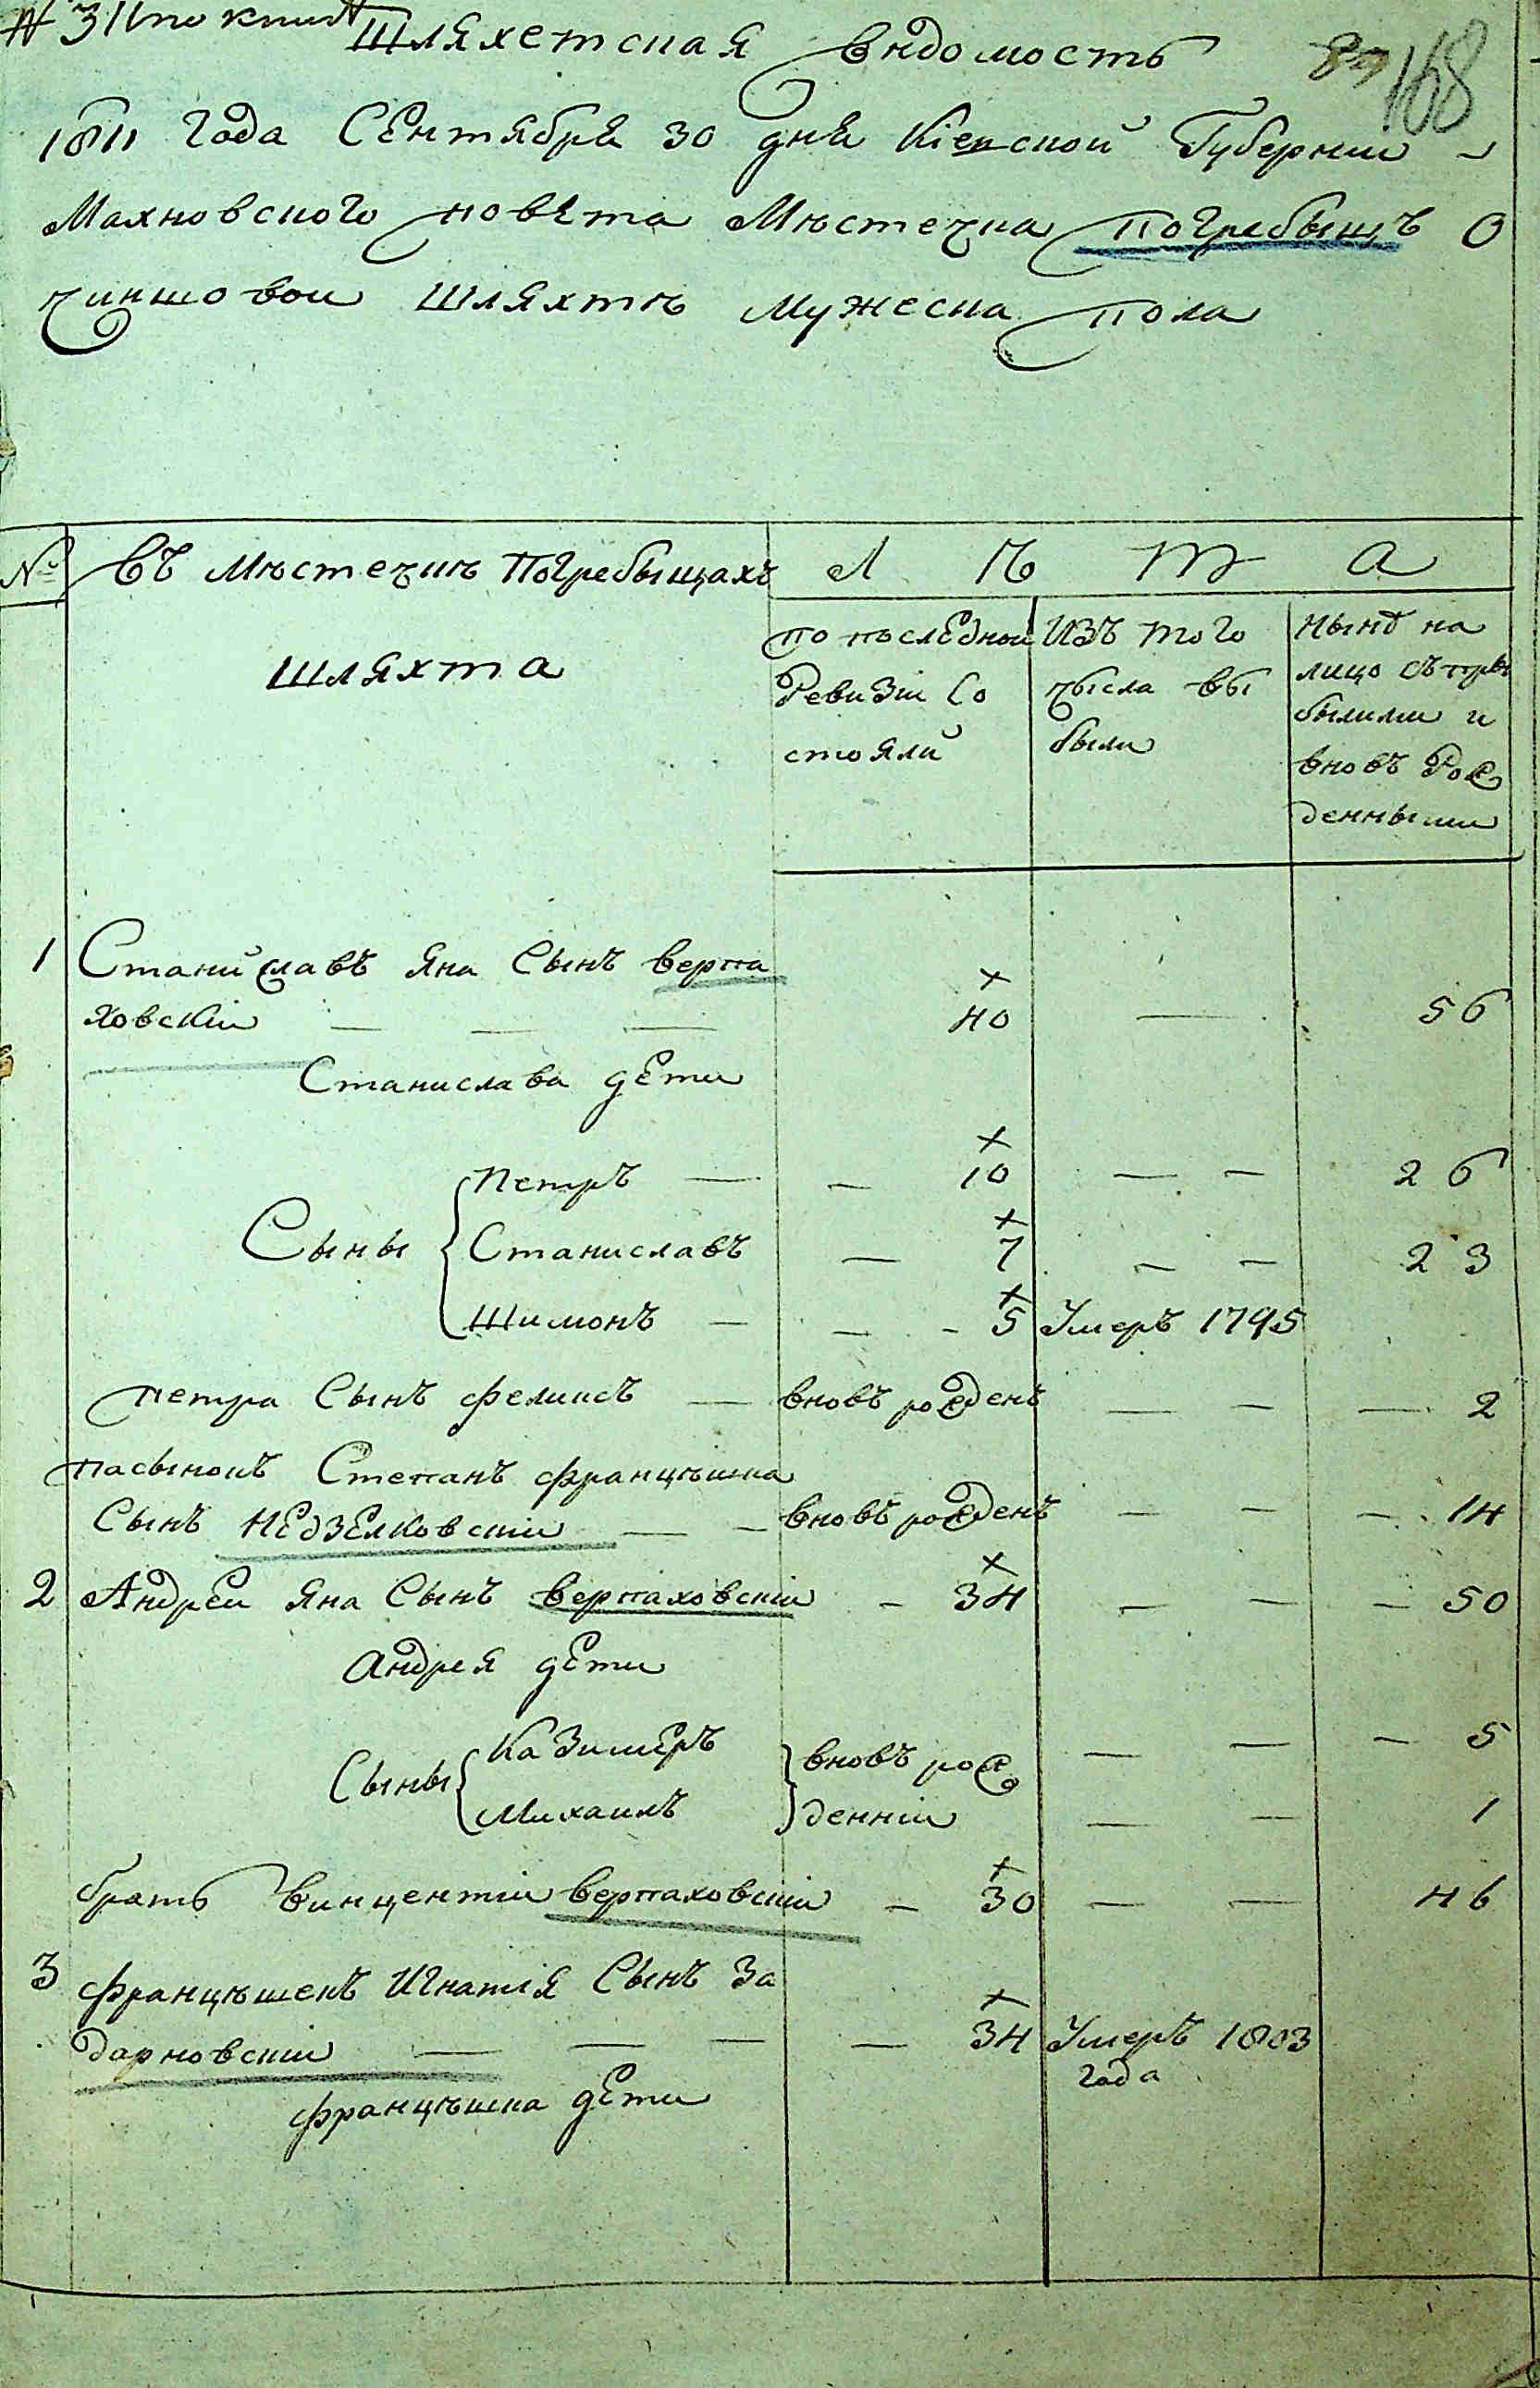 № 311 по книге
Шляхетская Вѣдомость
168
1811 Года Сентября 30 дня Кіевской Губернии
Махновского повета Мѣстечка Погребыщъ О
чиншовои Шляхтѣ Мужеска пола
№ Въ Мѣстечкѣ Погребыщахъ Л Ѣ Т А
Шляхта
по последнои Ревизіи Состояли
Изъ того чысла выбыли
Нынѣ на лицо съ прибылими и вновъ Рожденными
1 Станиславъ Яна Сынъ Верпа
ховскіи — — — 40 — 56
Станислава дети
Сыны
Петръ — — 10 — — 26
Станиславъ — 7 — — 23
Шимонъ — — - 5 Умеръ 1795
Петра Сынъ Феликсъ — вновъ рожденъ — — — 2
пасынокъ Степанъ Францѣшка
Сынъ Недзелковскіи — — вновъ рожденъ — — — 14
2 Андреи Яна Сынъ Верпаховскіи — 34 — — — 50
Андрея дети
Сыны
Казимеръ — — — 5
Михаилъ — — 1
вновъ рож
денніи
братъ Винцентіи Верпаховскіи — 30 — — 46
3 Францѣшекъ Игнатія Сынъ За
дарновскіи — — — — 34 Умеръ 1803
года
Францѣшка дети